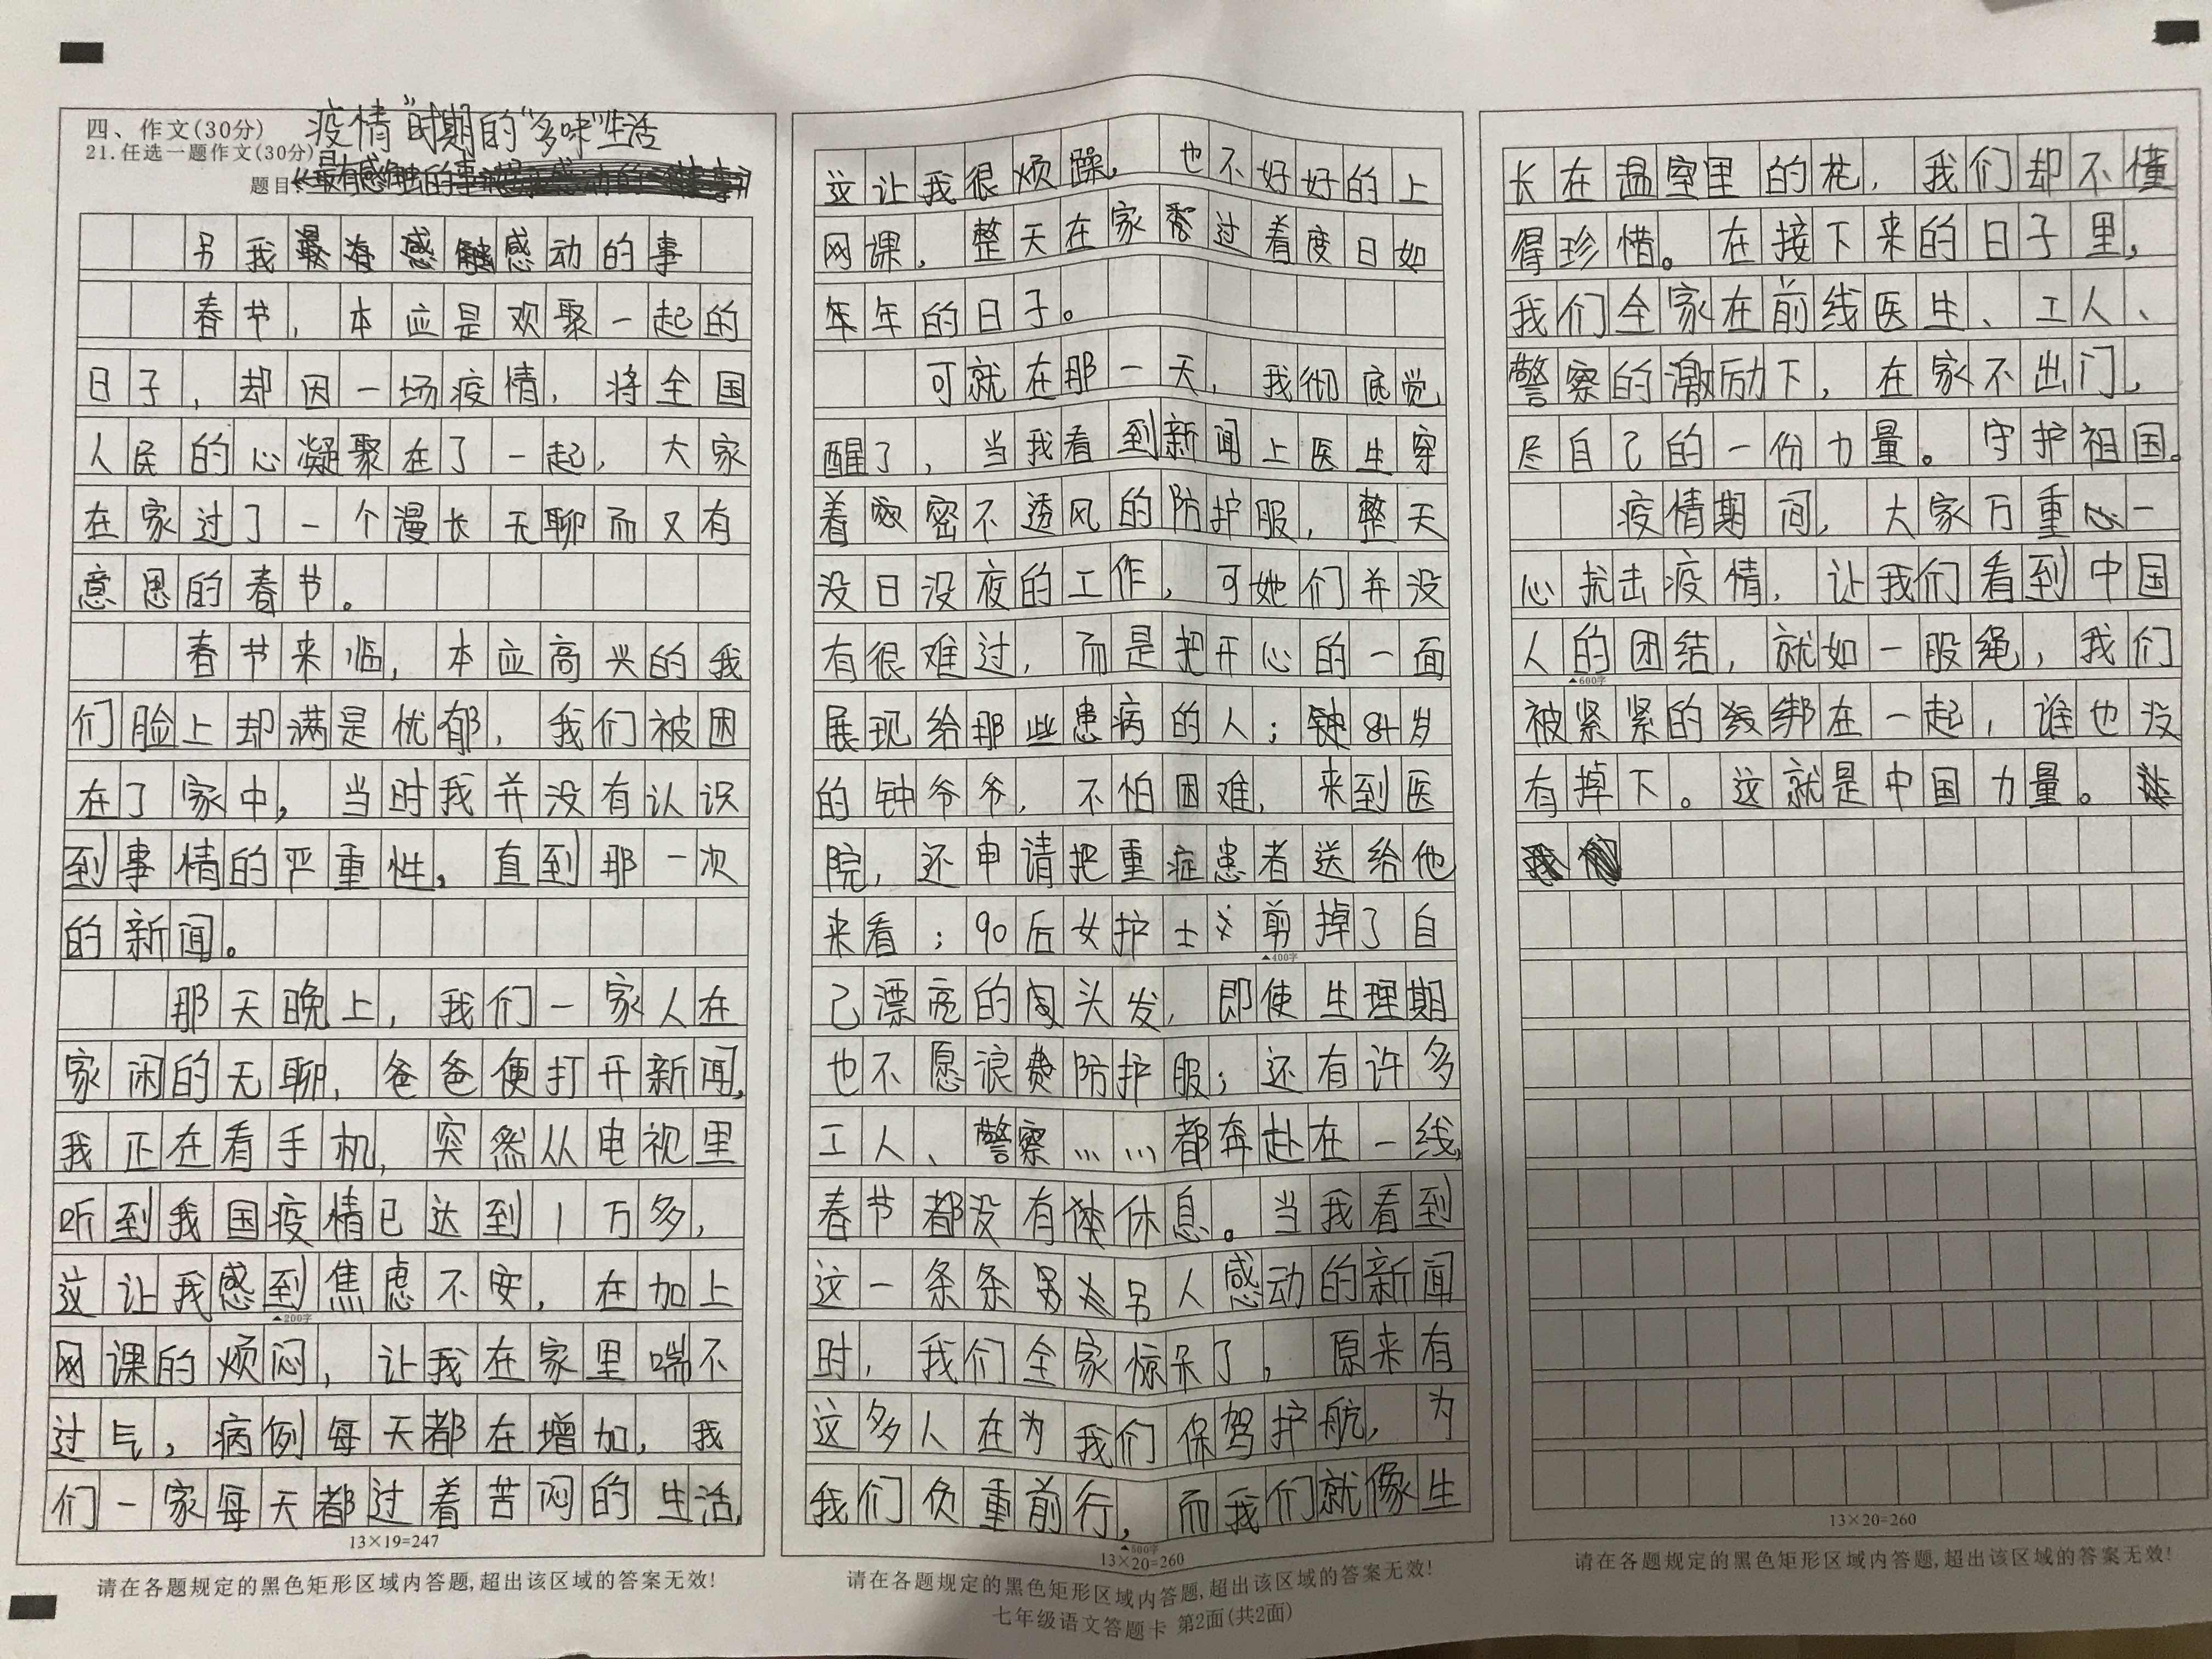 四、作文(30分)
疫情"时期的"多味"生活
21.任选一题作文(30分)
题目
另我感动的事
春节，本应是欢聚一起的
日子，却因一场疫情，将全国
人民的心凝聚在了一起，大家
在家过了一个漫长无聊而又有
意思的春节。
春节来临，本应高兴的我
们脸上却满是忧郁，我们被困
在了家中，当时我并没有认识
到事情的严重性，直到那一次
的新闻。
那天晚上，我们一家人在
家闲的无聊，爸爸便打开新闻，
我正在看手机，突然从电视里
听到我国疫情已达到1万多，
这让我感到焦虑不安，在加上
▲200字
网课的烦闷，让我在家里喘不
过气，病例每天都在增加，我
们一家每天都过着苦闷的生活，
13×19=247
请在各题规定的黑色矩形区域内答题,超出该区域的答案无效!
这让我很烦躁，也不好好的上
网课，整天在家过着度日如
年的日子。
可就在那一天，我彻底觉
醒了，当我看到新闻上医生穿
着密不透风的防护服，整天
没日没夜的工作，可她们并没
有很难过，而是把开心的一面
展现给那些患病的人；84岁
的钟爷爷，不怕困难，来到医
院，还申请把重症患者送给他
来看；90后女护士剪掉了自
▲400字
己漂亮的头发，即使生理期
也不愿浪费防护服；还有许多
工人、警察……都奔赴在一线，
春节都没有休息。当我看到
这一条条另人感动的新闻
时，我们全家惊呆了，原来有
这多人在为我们保驾护航，为
我们负重前行，而我们就像生
▲500字
13×20=260
请在各题规定的黑色矩形区域内答题,超出该区域的答案无效!
七年级语文答题卡 第2面(共2面)
长在温室里的花，我们却不懂
得珍惜。在接下来的日子里，
我们全家在前线医生、工人、
警察的激励下，在家不出门，
尽自己的一份力量。守护祖国。
疫情期间，大家万重一
心抗击疫情，让我们看到中国
人的团结，就如一股绳，我们
▲600字
被紧紧的绑在一起，谁也没
有掉下。这就是中国力量。
13×20=260
请在各题规定的黑色矩形区域内答题,超出该区域的答案无效!